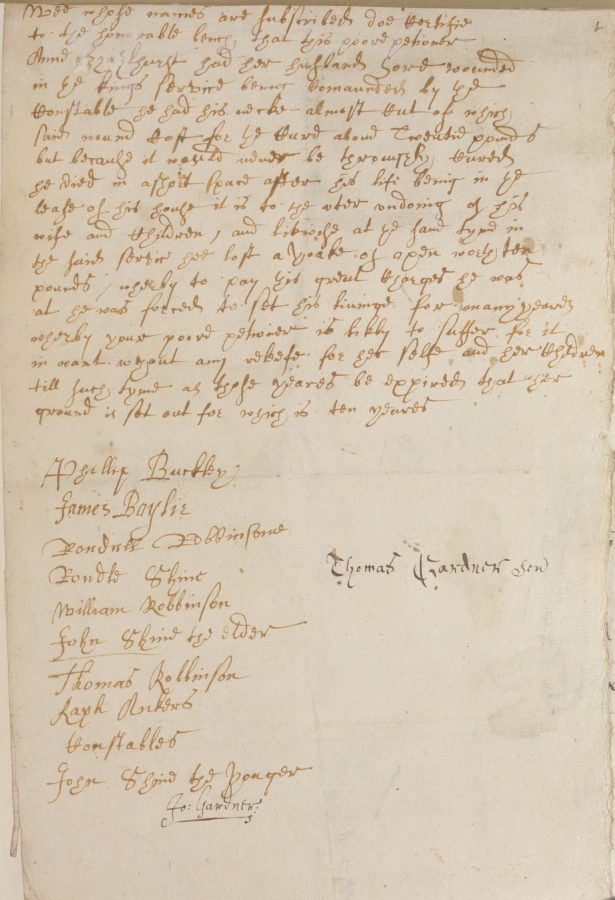 Wee whose names are subscribed doe Certifie
to the honorable bench, that this poore petioner
Anne hurst had her husband sore wounded
in ye kings service being Comaunded by ye
Constable he had his necke almost Cut of which
said wound Cost for ye Cure about Twentie pounds
but because it would never be throughly Cured
he died in a short space after his life being in ye
lease of his house it is to the uter undoing of his
wife and Children, and likwise at ye same tyme in
the said service hee lost a yoake of oxen worth ten
pounds, wherby to pay his great Charges he was
at he was forced to set his livinge for many yeares
wherby your poore peticioner is likly to suffer for it
in want wthout any releefe for her selfe and her Children
till such tyme as those yeares be expired that her
ground is set out for which is ten yeares
Phillip Buckley
James Baylie
Rondull Robbinsone
Thomas Gardner sen
Rondle Shine
William Robbinson
John Shine the elder
Thomas Robbinson
Raph Ankers
Constables
John Shine the yonger
Jo: Gardner: